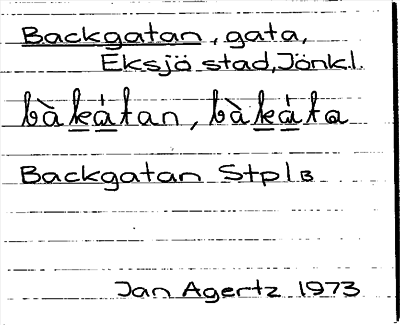 Backgatan, gata,
Eksjö stad, Jönk.l.
bàkȧtan, bàkȧta
Backgatan StplB
Jan Agertz 1973